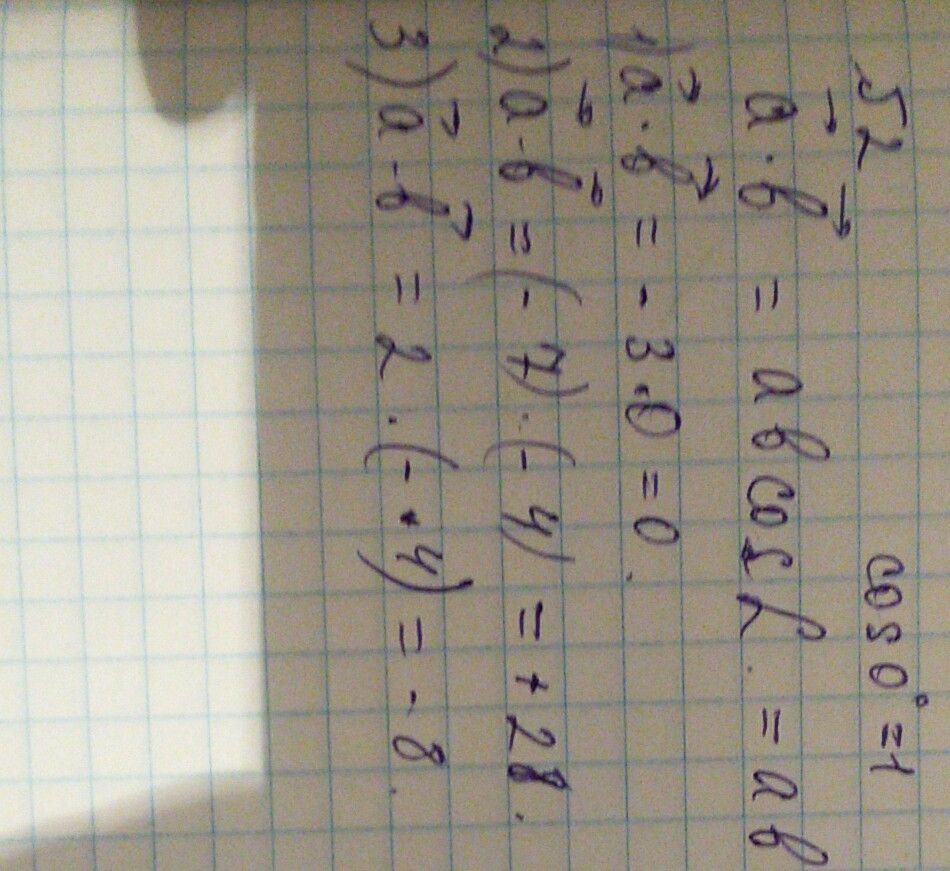 52 cos 0° = 1
a⃗ · b⃗ = a b cos α. = a b
1) a⃗ · b⃗ = - 3 · 0 = 0.
2) a⃗ · b⃗ = (- 7) · (- 4) = + 28.
3) a⃗ · b⃗ = 2 · (- 4) = - 8.